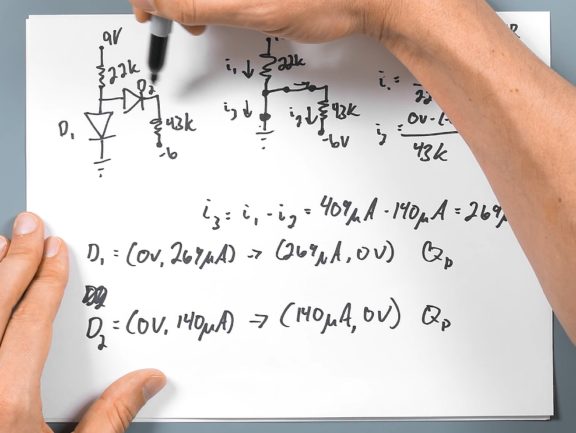 9V
22k
D₂
D₁
43k
-6
i₁ ↓ 22k
i₃ ↓ i₂ ↓ 43k
-6V
i₁ =
22
i₂ = 0V-(-
43k
i₃ = i₁ - i₂ = 409μA - 140μA = 269μ
D₁ = (0V, 269μA) → (269μA, 0V) Qp
D₂ = (0V, 140μA) → (140μA, 0V) Qp